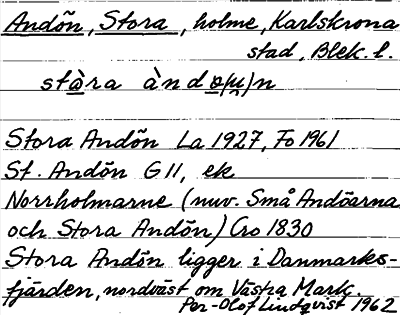 Andön, Stora, holme, Karlskrona
stad, Blek. l.
Stora Andön La 1927, Fo 1961
St. Andön G 11, ek
Norrholmarne (nuv. Små Andöarna
och Stora Andön) Cro 1830
Stora Andön ligger i Danmarks-
fjärden, nordväst om Västra Mark
Per-Olof Lindqvist 1962